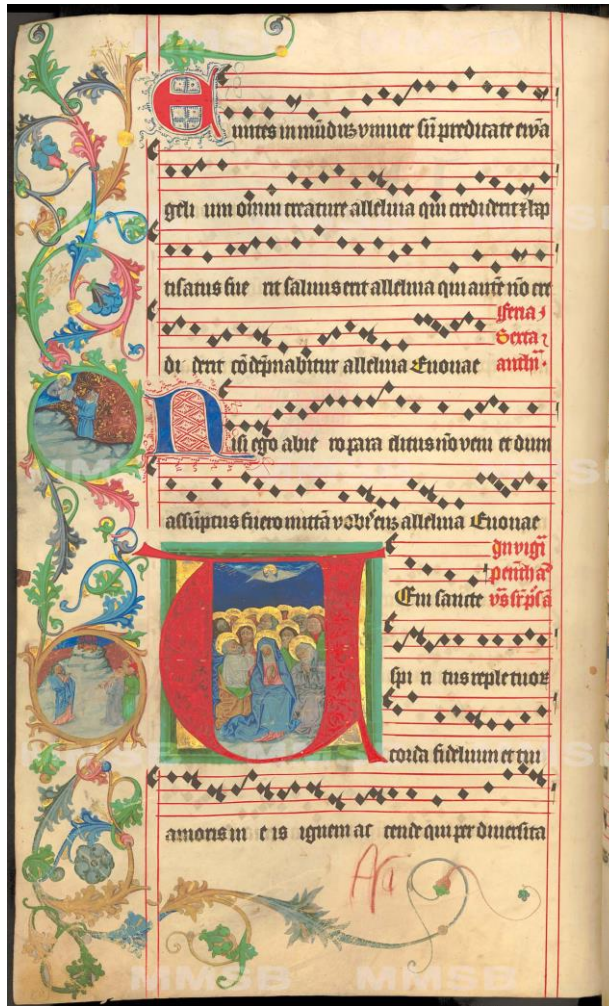 Euntes in mūdūz vniuer sū predicate ewā
geli um omni creature alleluia qui crediderit ⁊ bap
tisatus fue rit saluus erit alleluia qui autē nō cre
di derit cōdēpnabitur alleluia Euouae
feria
Sexta
anthū
Nisi ego abie ro para clitus nō veni et dum
assūptus fuero mittā vobis eūz alleluia Euouae
In vigi
Ueni sancte
spi ri tus reple tuor
corda fidelium et tui
amoris in e is ignem ac cende qui per diuersita
MMSB